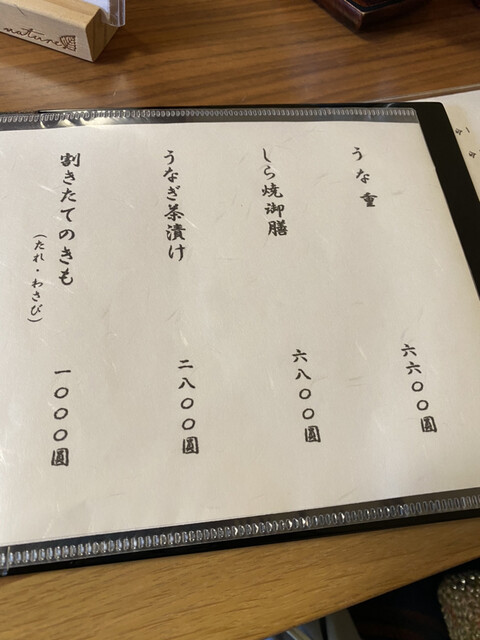 うな重
六六〇〇圓
しら焼御膳
六八〇〇圓
うなぎ茶漬け
二八〇〇圓
割きたてのきも
(たれ・わさび)
一〇〇〇圓
nature